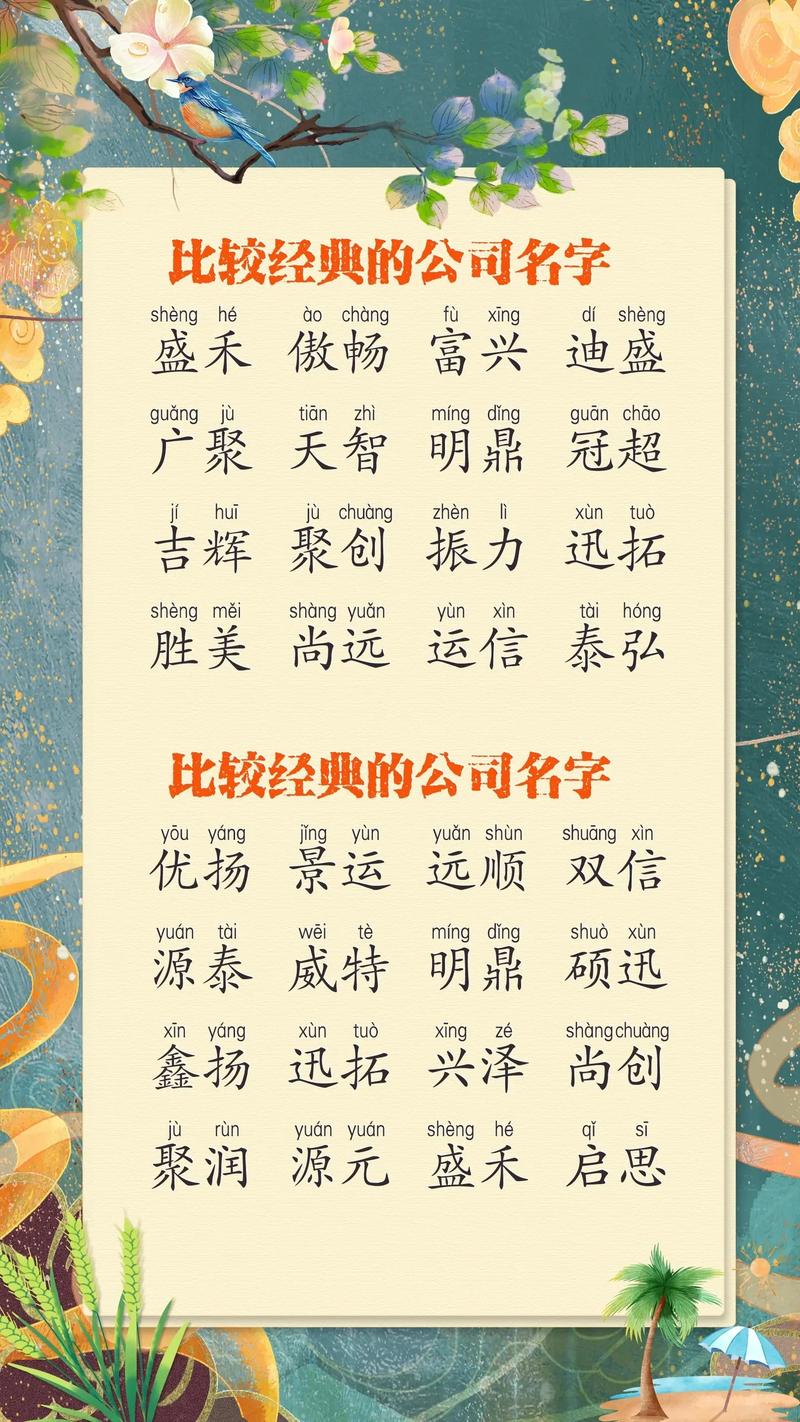 比较经典的公司名字
shèng hé ào chàng fù xīng dí shèng
盛禾 傲畅 富兴 迪盛
guǎng jù tiān zhì míng dǐng guān chāo
广聚 天智 明鼎 冠超
jí huī jù chuàng zhèn lì xùn tuò
吉辉 聚创 振力 迅拓
shèng měi shàng yuǎn yùn xìn tài hóng
胜美 尚远 运信 泰弘
比较经典的公司名字
yōu yáng jǐng yùn yuǎn shùn shuāng xìn
优扬 景运 远顺 双信
yuán tài wēi tè míng dǐng shuò xùn
源泰 威特 明鼎 硕迅
xīn yáng xùn tuò xīng zé shàng chuàng
鑫扬 迅拓 兴泽 尚创
jù rùn yuán yuán shèng hé qǐ sī
聚润 源元 盛禾 启思